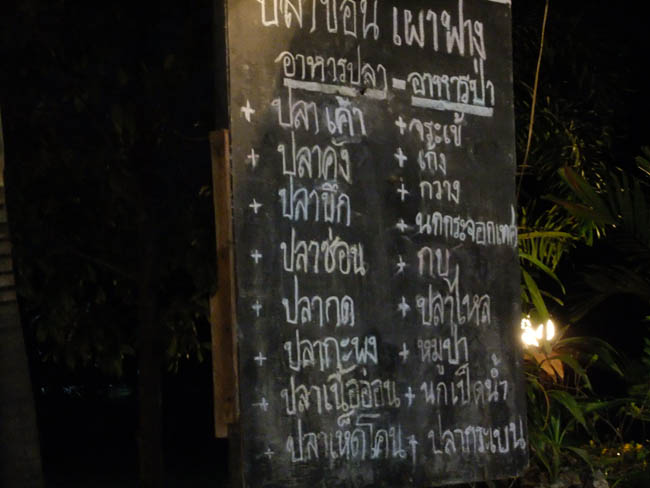 ปลาช่อน เผาฟาง
อาหารปลา - อาหารป่า
+ ปลาเค้า + จระเข้
+ ปลาคัง + เก้ง
+ ปลาบึก + กวาง
+ ปลาช่อน + นกกระจอกเทศ
+ ปลากด + กบ
+ ปลากะพง + ปลาไหล
+ ปลาเนื้ออ่อน + หมูป่า
+ ปลาเห็ดโคน + นกเป็ดน้ำ
+ ปลากระเบน